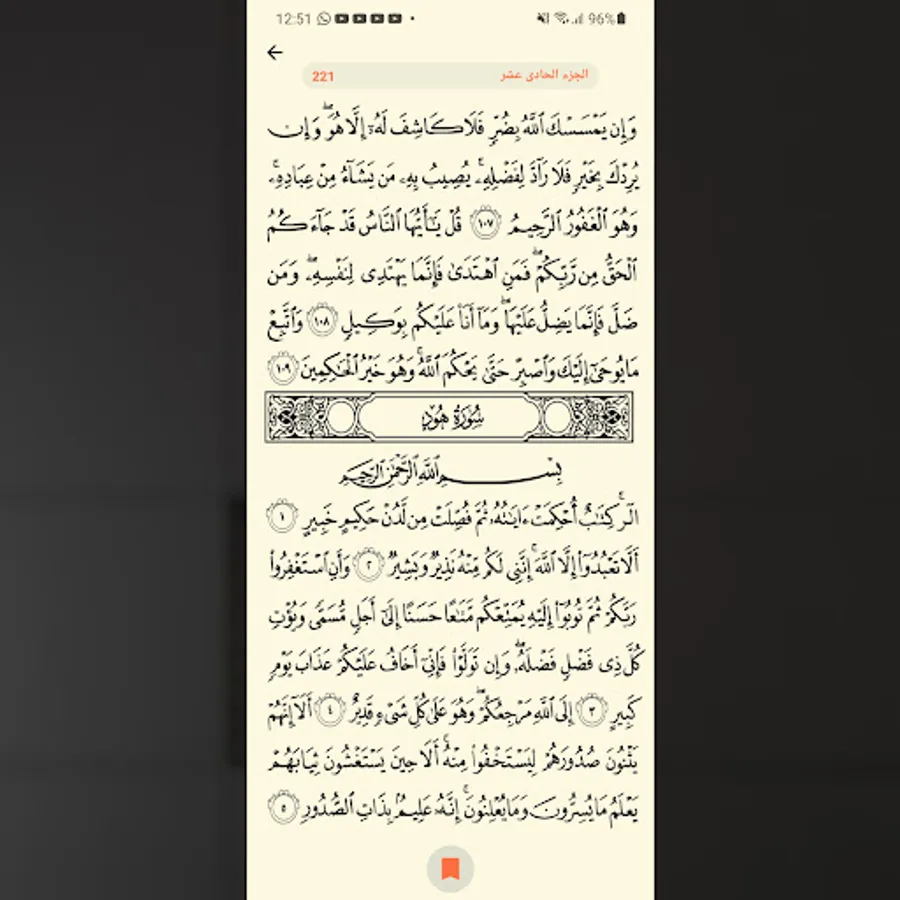 12:51
96%
الجزء الحادى عشر
221
وَإِن يَمْسَسْكَ ٱللَّهُ بِضُرٍّ فَلَا كَاشِفَ لَهُۥٓ إِلَّا هُوَۖ وَإِن
يُرِدْكَ بِخَيْرٍ فَلَا رَآدَّ لِفَضْلِهِۦۚ يُصِيبُ بِهِۦ مَن يَشَآءُ مِنْ عِبَادِهِۦۚ
وَهُوَ ٱلْغَفُورُ ٱلرَّحِيمُ ١٠٧ قُلْ يَٰٓأَيُّهَا ٱلنَّاسُ قَدْ جَآءَكُمُ
ٱلْحَقُّ مِن رَّبِّكُمْۖ فَمَنِ ٱهْتَدَىٰ فَإِنَّمَا يَهْتَدِى لِنَفْسِهِۦۖ وَمَن
ضَلَّ فَإِنَّمَا يَضِلُّ عَلَيْهَاۖ وَمَآ أَنَا۠ عَلَيْكُم بِوَكِيلٍ ١٠٨ وَٱتَّبِعْ
مَا يُوحَىٰٓ إِلَيْكَ وَٱصْبِرْ حَتَّىٰ يَحْكُمَ ٱللَّهُۚ وَهُوَ خَيْرُ ٱلْحَٰكِمِينَ ١٠٩
سُورَةُ هُودٍ
بِسْمِ ٱللَّهِ ٱلرَّحْمَٰنِ ٱلرَّحِيمِ
الٓرۚ كِتَٰبٌ أُحْكِمَتْ ءَايَٰتُهُۥ ثُمَّ فُصِّلَتْ مِن لَّدُنْ حَكِيمٍ خَبِيرٍ ١
أَلَّا تَعْبُدُوٓا۟ إِلَّا ٱللَّهَۚ إِنَّنِى لَكُم مِّنْهُ نَذِيرٌ وَبَشِيرٌ ٢ وَأَنِ ٱسْتَغْفِرُوا۟
رَبَّكُمْ ثُمَّ تُوبُوٓا۟ إِلَيْهِ يُمَتِّعْكُم مَّتَٰعًا حَسَنًا إِلَىٰٓ أَجَلٍ مُّسَمًّى وَيُؤْتِ
كُلَّ ذِى فَضْلٍ فَضْلَهُۥۖ وَإِن تَوَلَّوْا۟ فَإِنِّىٓ أَخَافُ عَلَيْكُمْ عَذَابَ يَوْمٍ
كَبِيرٍ ٣ إِلَى ٱللَّهِ مَرْجِعُكُمْۖ وَهُوَ عَلَىٰ كُلِّ شَىْءٍ قَدِيرٌ ٤ أَلَآ إِنَّهُمْ
يَثْنُونَ صُدُورَهُمْ لِيَسْتَخْفُوا۟ مِنْهُۚ أَلَا حِينَ يَسْتَغْشُونَ ثِيَابَهُمْ
يَعْلَمُ مَا يُسِرُّونَ وَمَا يُعْلِنُونَۚ إِنَّهُۥ عَلِيمٌۢ بِذَاتِ ٱلصُّدُورِ ٥